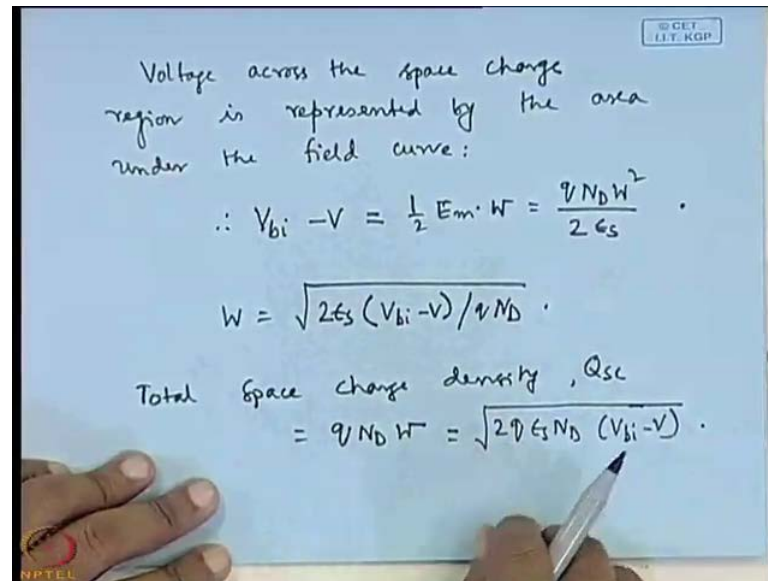 © CET
I.I.T. KGP
Voltage across the space charge
region is represented by the area
under the field curve:
∴ V_bi - V = 1/2 E_m · W = q N_D W² / 2 ε_s .
W = √(2 ε_s (V_bi - V) / q N_D) .
Total space charge density, Q_sc
= q N_D W = √(2 q ε_s N_D (V_bi - V)) .
NPTEL